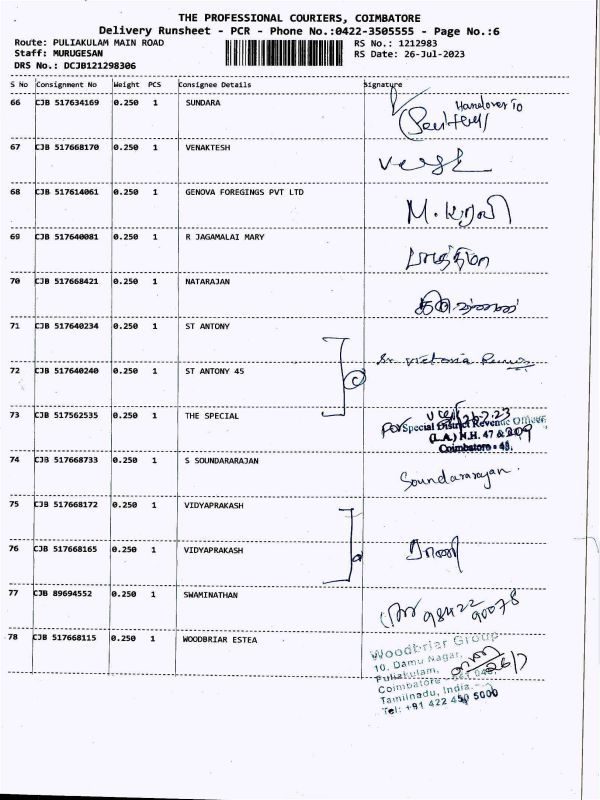 THE PROFESSIONAL COURIERS, COIMBATORE
Delivery Runsheet - PCR - Phone No.:0422-3505555 - Page No.:6
Route: PULIAKULAM MAIN ROAD RS No.: 1212983
Staff: MURUGESAN RS Date: 26-Jul-2023
DRS No.: DCJB121298306
S No Consignment No Weight PCS Consignee Details Signature
66 CJB 517634169 0.250 1 SUNDARA Handover To
67 CJB 517668170 0.250 1 VENAKTESH
68 CJB 517614061 0.250 1 GENOVA FOREGINGS PVT LTD
69 CJB 517640081 0.250 1 R JAGAMALAI MARY
70 CJB 517668421 0.250 1 NATARAJAN
71 CJB 517640234 0.250 1 ST ANTONY
72 CJB 517640240 0.250 1 ST ANTONY 45 Sr. Victoria
73 CJB 517562535 0.250 1 THE SPECIAL 26.7.23
For Special District Revenue Officer
(L.A.) N.H. 47 & 209
Coimbatore - 45.
74 CJB 517668733 0.250 1 S SOUNDARARAJAN Soundararajan.
75 CJB 517668172 0.250 1 VIDYAPRAKASH
76 CJB 517668165 0.250 1 VIDYAPRAKASH
77 CJB 89694552 0.250 1 SWAMINATHAN 98422 90078
78 CJB 517668115 0.250 1 WOODBRIAR ESTEA
Woodbriar Group
10, Damu Nagar,
Puliakulam, 26/7
Coimbatore
Tamilnadu, India.
Tel: +91 422 450 5000